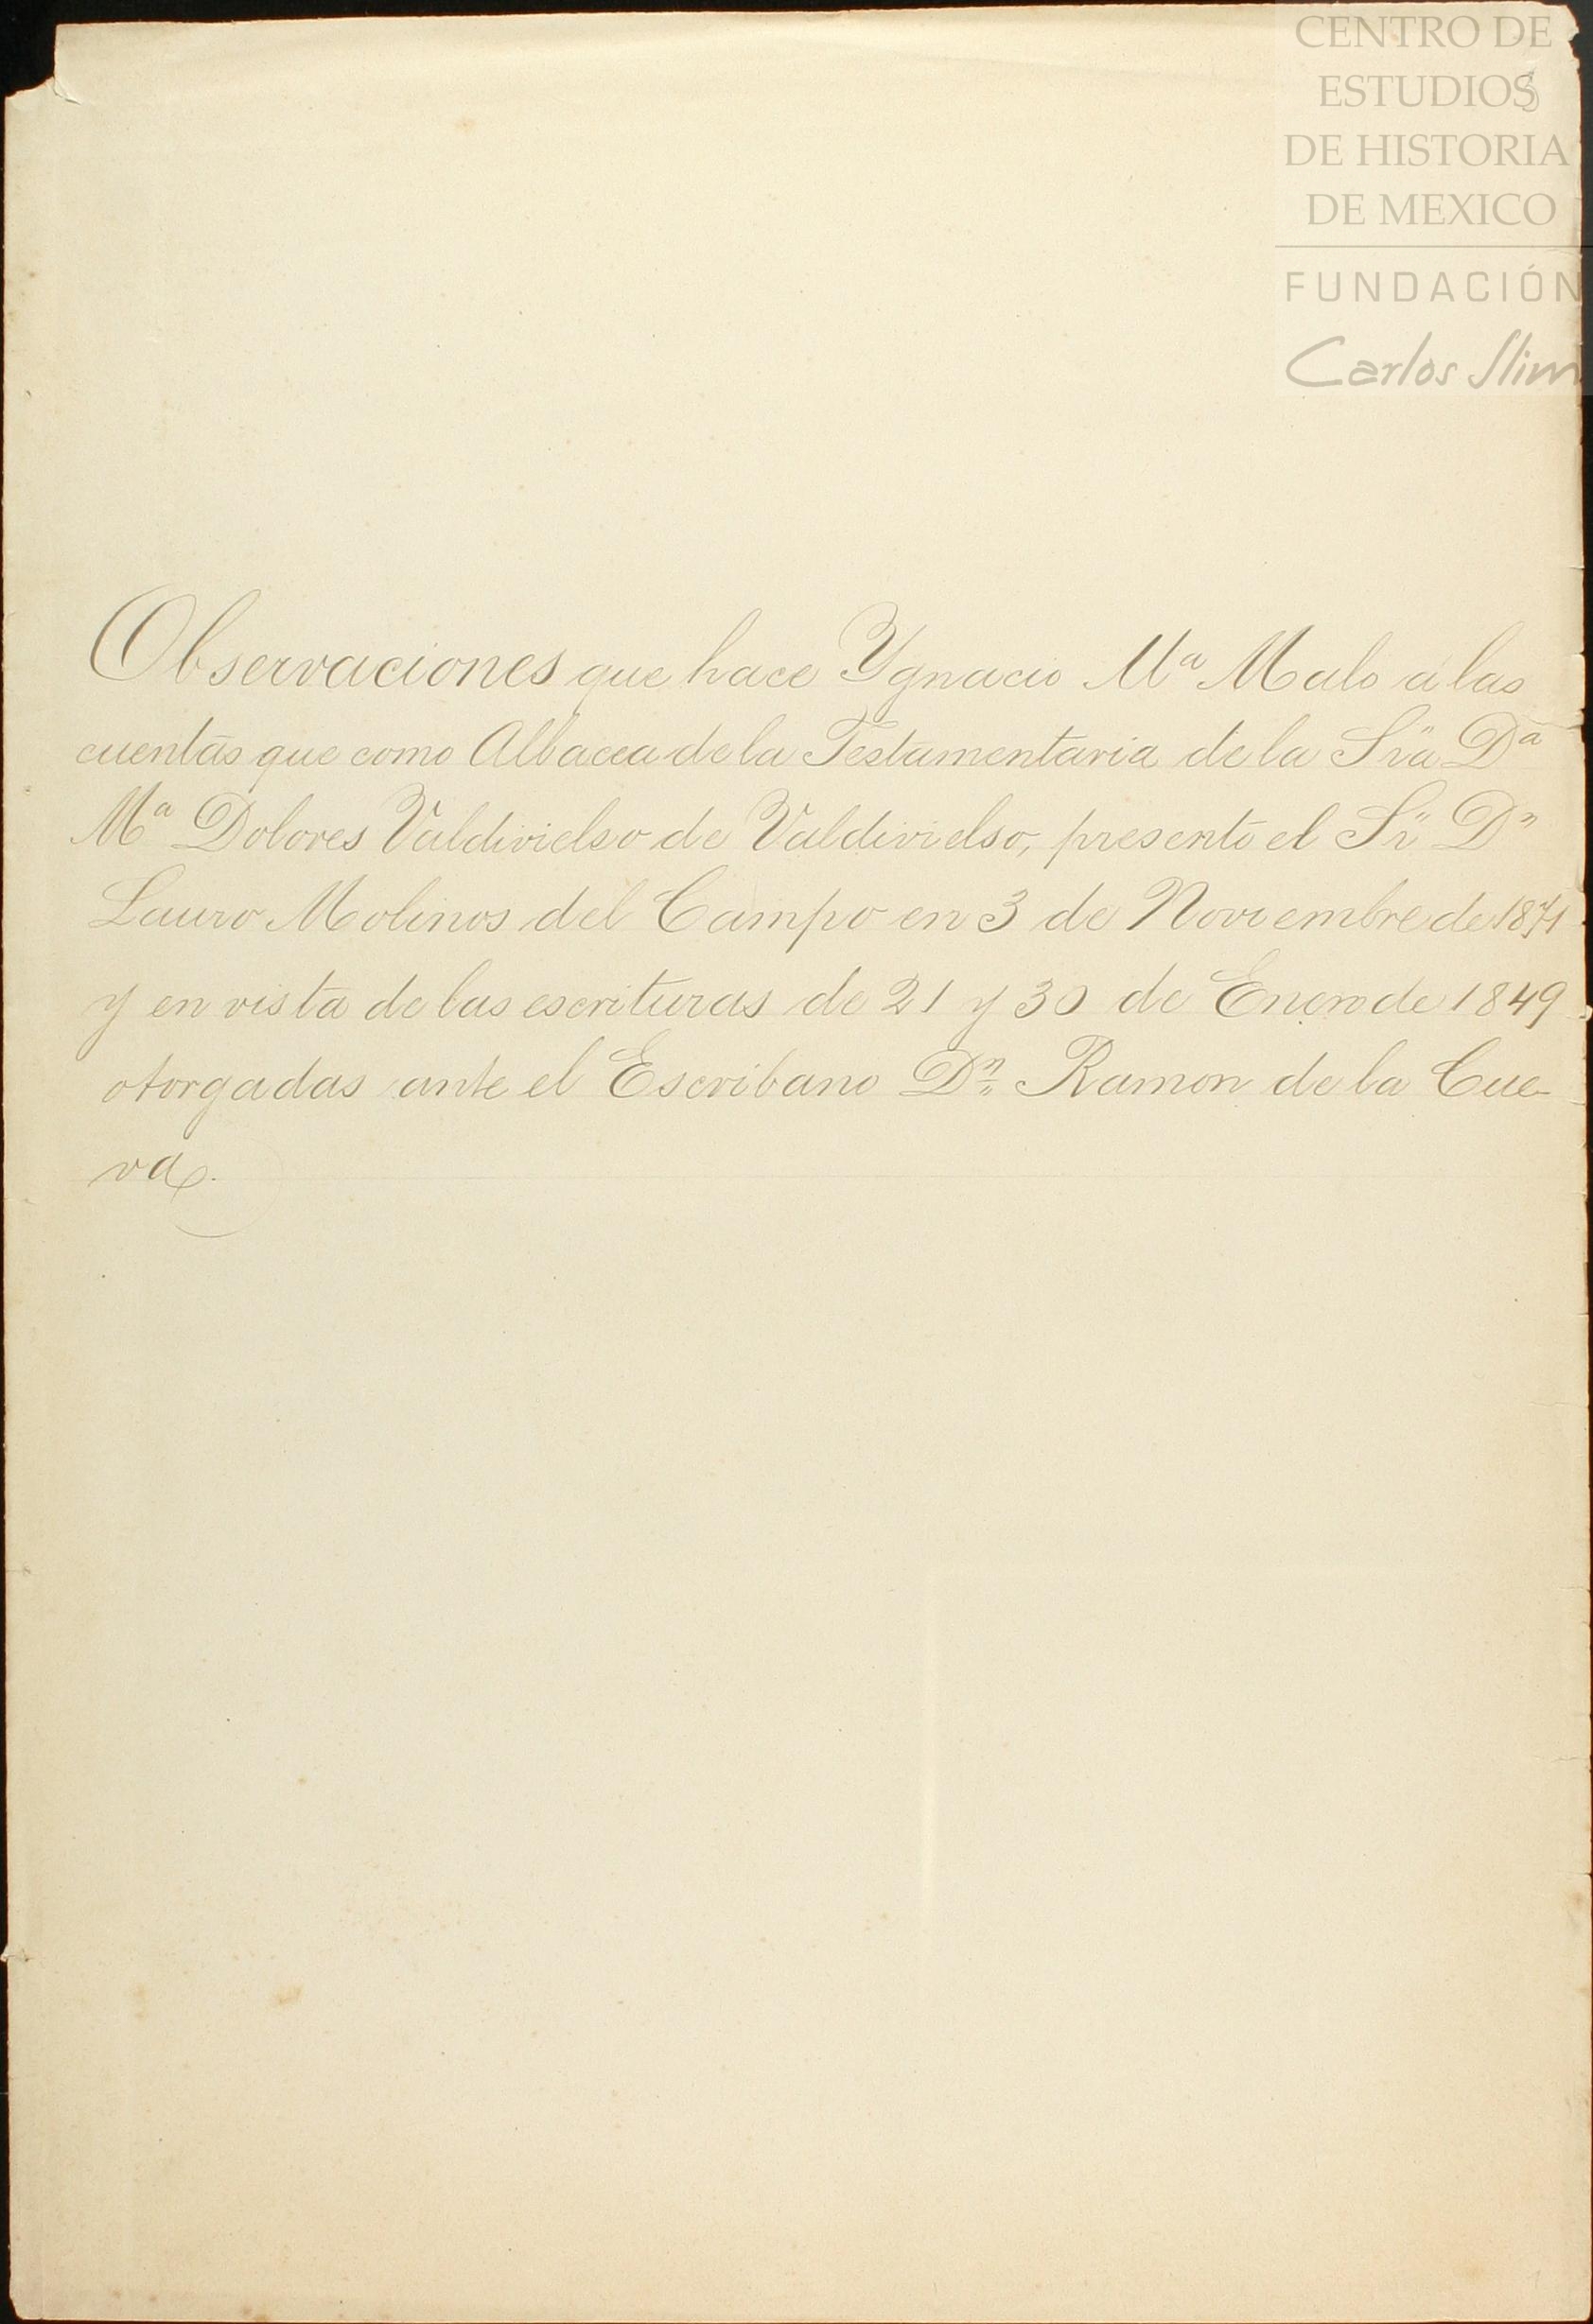 CENTRO DE
ESTUDIOS
DE HISTORIA
DE MEXICO
FUNDACIÓN
Carlos Slim
Observaciones que hace Ygnacio Mª Malo á las
cuentas que como Albacea de la Testamentaria de la Sra Dª
Mª Dolores Valdivielso de Valdivielso, presentó el Sr Dn
Lauro Molinos del Campo en 3 de Noviembre de 1871
y en vista de las escrituras de 21 y 30 de Enero de 1849
otorgadas ante el Escribano Dn. Ramon de la Cue-
va.